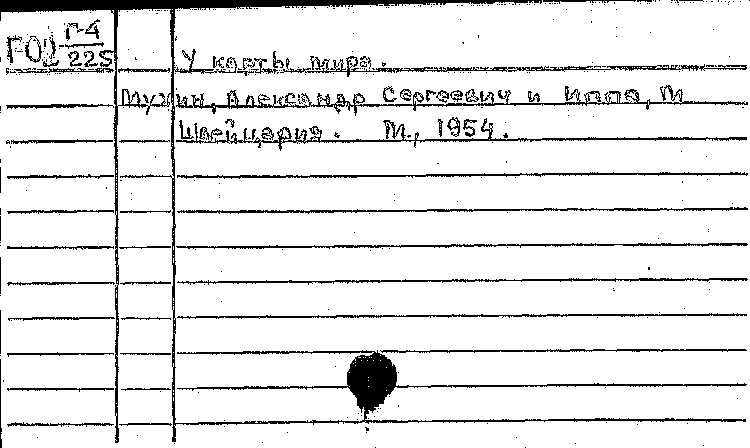 Г02 Г-4
225
У карты мира.
Мухин, Александр Сергеевич и Иппо, М
Швейцария. М., 1954.